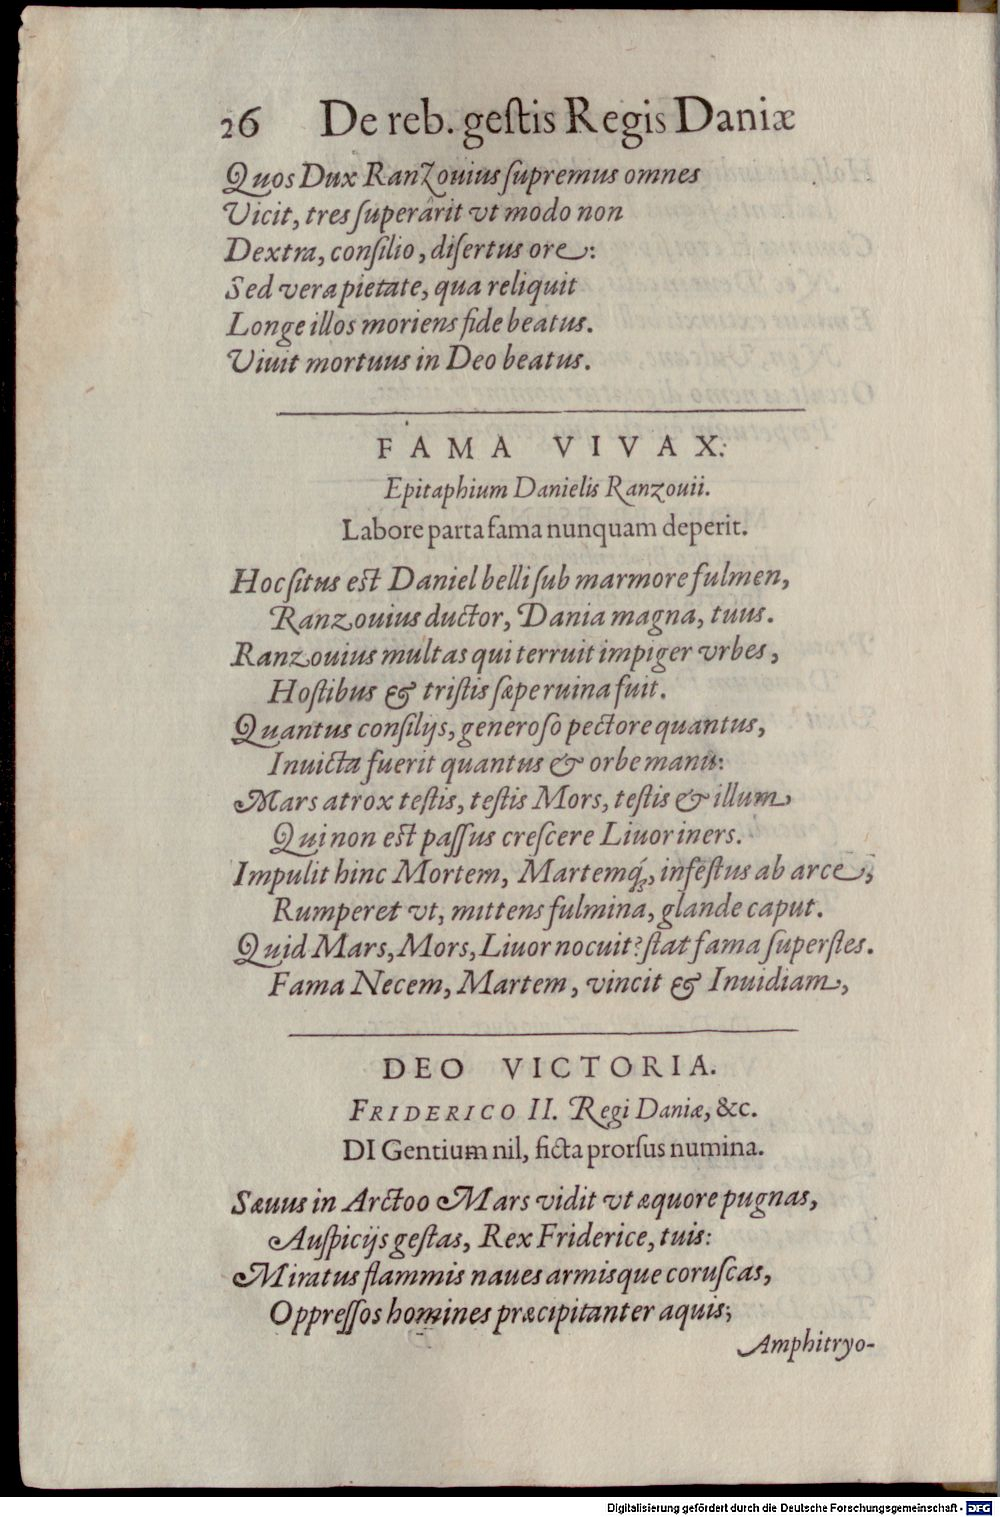 26 De reb. geſtis Regis Daniæ
Quos Dux Ranzouius ſupremus omnes
Vicit, tres ſuperârit vt modo non
Dextra, conſilio, diſertus ore:
Sed vera pietate, qua reliquit
Longe illos moriens fide beatus.
Viuit mortuus in Deo beatus.
FAMA VIVAX.
Epitaphium Danielis Ranzouii.
Labore parta fama nunquam deperit.
Hoc ſitus est Daniel belli ſub marmore fulmen,
Ranzouius ductor, Dania magna, tuus.
Ranzouius multas qui terruit impiger vrbes,
Hoſtibus & triſtis ſæpe ruina fuit.
Quantus conſilijs, generoſo pectore quantus,
Inuicta fuerit quantus & orbe manu:
Mars atrox teſtis, teſtis Mors, teſtis & illum
Qui non est paſſus creſcere Liuor iners.
Impulit hinc Mortem, Martemq́;, infeſtus ab arce,
Rumperet vt, mittens fulmina, glande caput.
Quid Mars, Mors, Liuor nocuit? ſtat fama ſuperſtes.
Fama Necem, Martem, vincit & Inuidiam,
DEO VICTORIA.
FRIDERICO II. Regi Daniæ, &c.
DI Gentium nil, ficta prorſus numina.
Sæuus in Arctoo Mars vidit vt æquore pugnas,
Auſpicijs geſtas, Rex Friderice, tuis:
Miratus flammis naues armisque coruſcas,
Oppreſſos homines præcipitanter aquis;
Amphitryo-
Digitalisierung gefördert durch die Deutsche Forschungsgemeinschaft - DFG